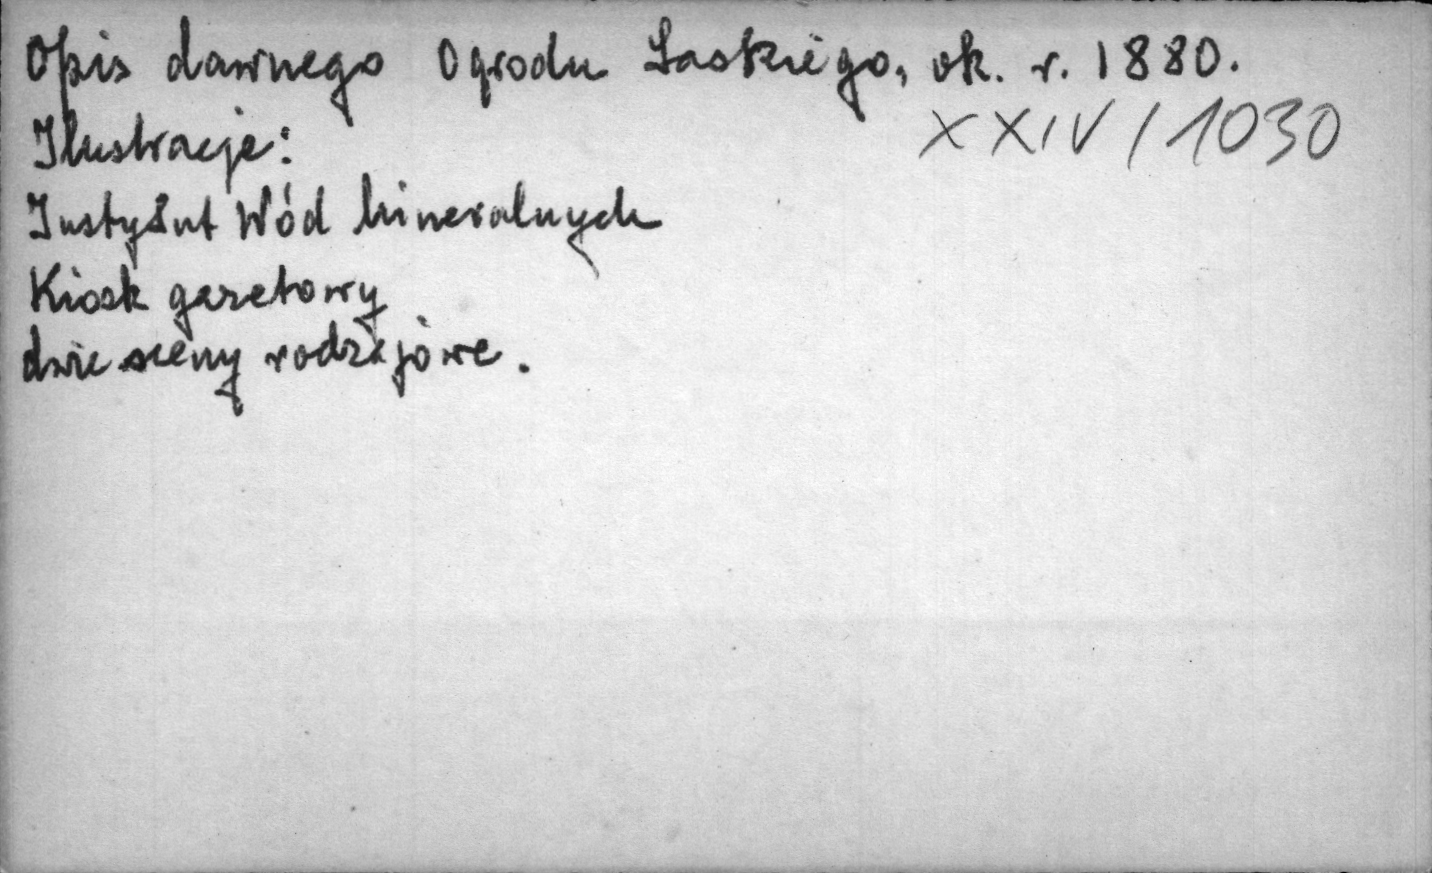 Opis dawnego Ogrodu Saskiego, ok. r. 1880.
XXIV/1030
Ilustracje:
Instytut Wód Mineralnych
Kiosk gazetowy
dwie sceny rodzajowe.